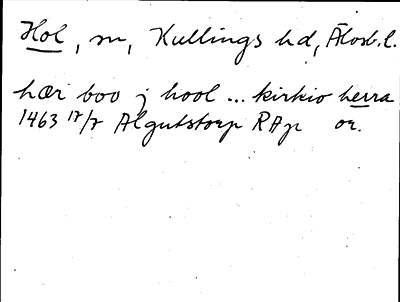 Hol, sn, Kullings hd, Älvsb.l.
hær boo j hool ... kirkio herra
1463 17/7 Algutstorp RAp or.